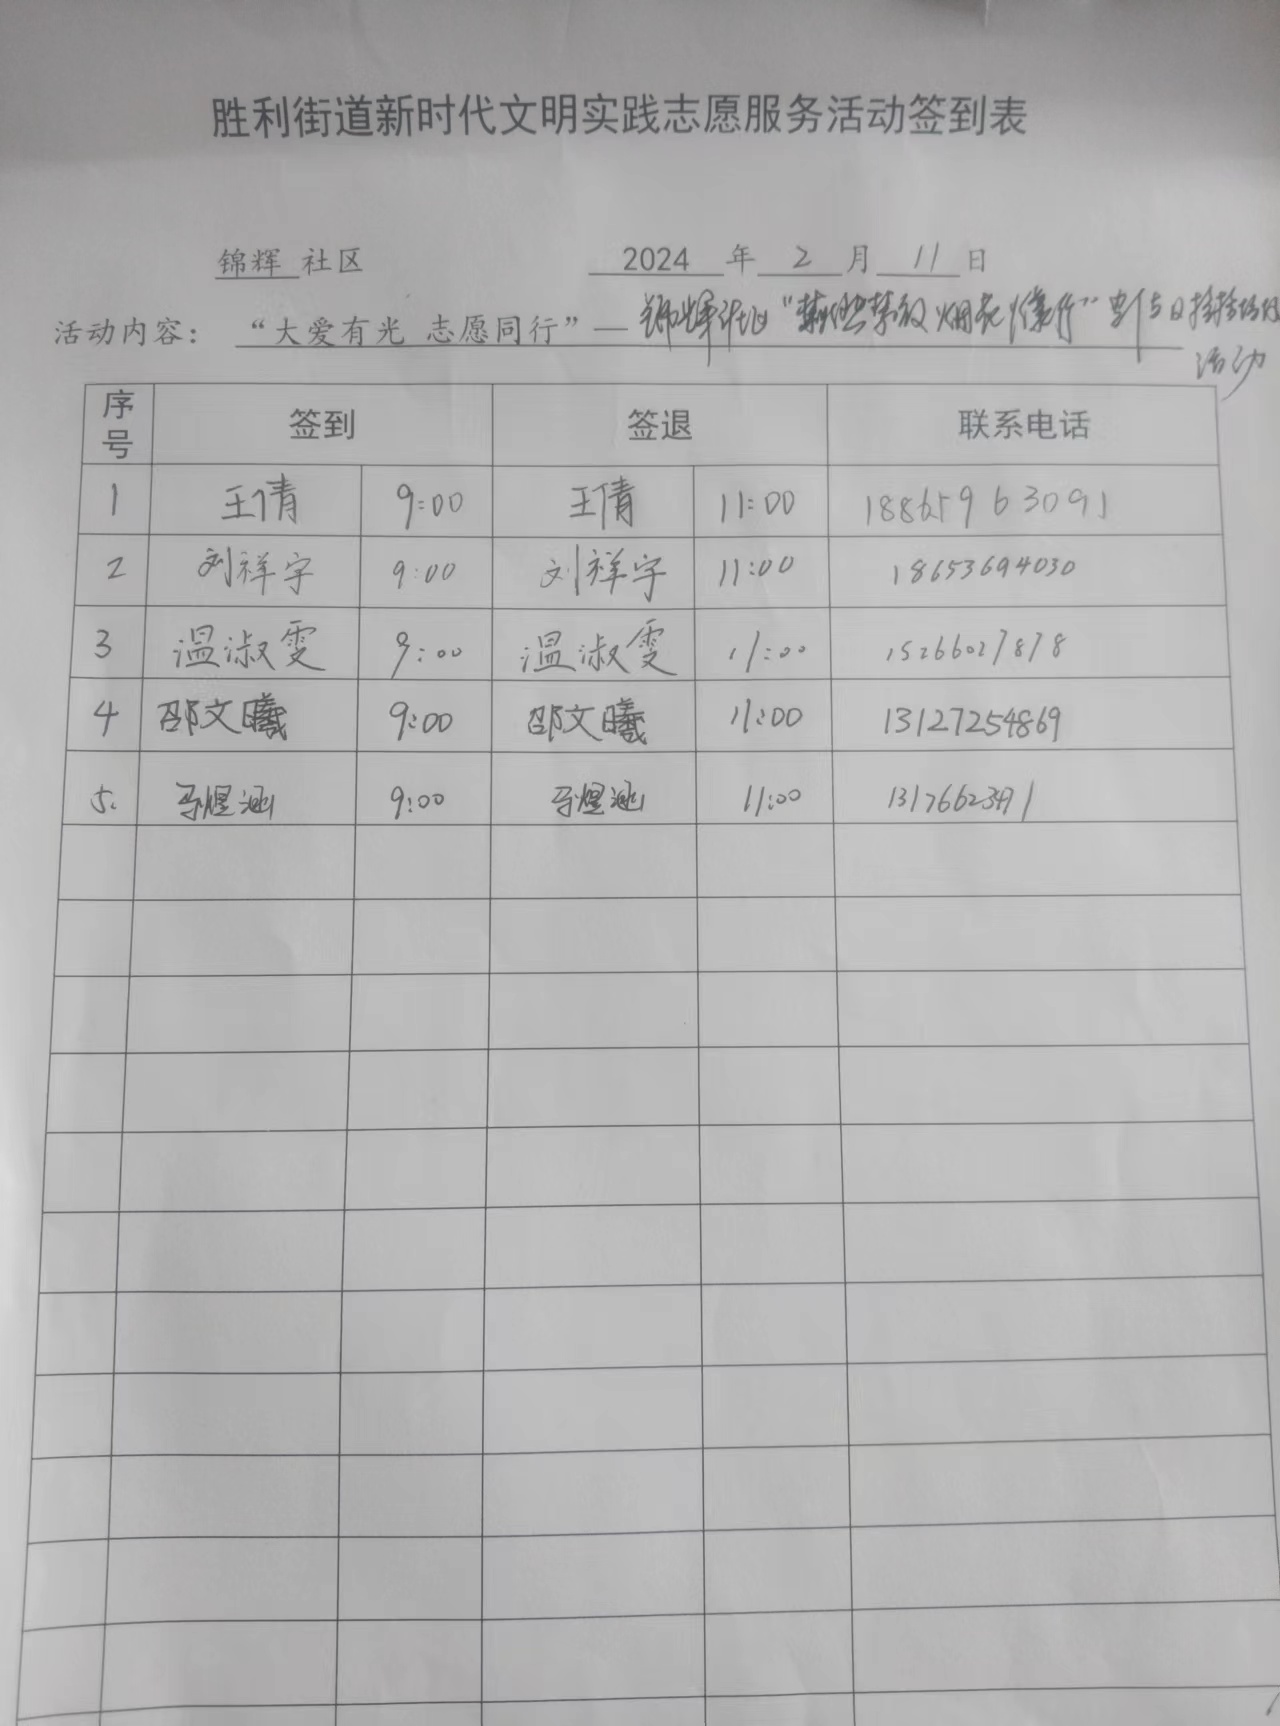 胜利街道新时代文明实践志愿服务活动签到表
锦辉 社区 2024 年 2 月 11 日
活动内容： “大爱有光 志愿同行”— 锦辉社区“禁燃禁放烟花爆竹”
活动
序号 签到 签退 联系电话
1 王倩 9:00 王倩 11:00 18865963091
2 刘祥宇 9:00 刘祥宇 11:00 18653694030
3 温淑雯 9:00 温淑雯 11:00 15266027878
4 邵文曦 9:00 邵文曦 11:00 13127254869
5. 马煜涵 9:00 马煜涵 11:00